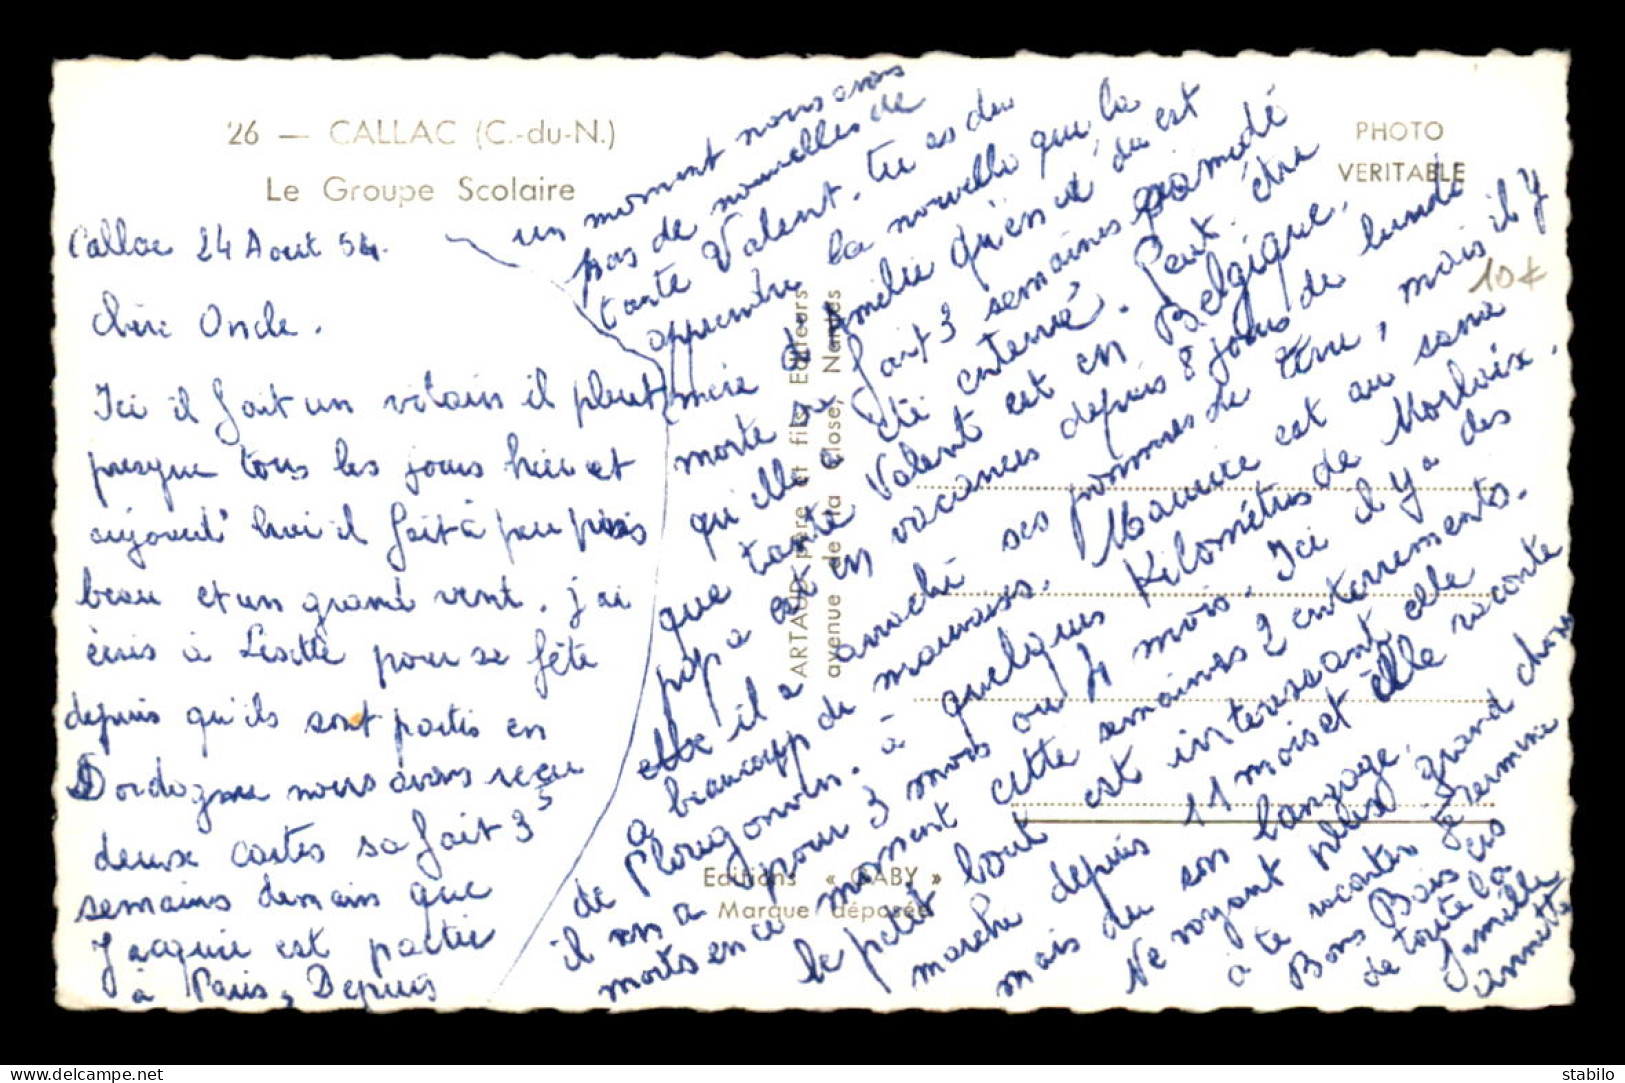 26 — CALLAC (C.-du-N.)
Le Groupe Scolaire
PHOTO
VERITABLE
10€
Callac 24 Aout 54.
Chère Oncle.
Ici il fait un vilain il pleut
presque tous les jours hier et
aujourd'hui il fait à peu près
beau et un grand vent. j'ai
écris à Lisette pour se fête
depuis qu'ils sont partis en
Dordogne nous avons reçu
deux cartes sa fait 3
semains demain que
Jacquie est partie
à Paris. Depuis
un moment nous avons
pas de nouvelles de
tante Valent. tu as du
apprendre la nouvelle que la
mère d'Amélie Quéméré du est
morte sa fait 3 semaines samedi
qu'elle a été enterré. Peut être
que tante Valent est en Belgique.
papa est en vacances depuis 8 jours de lundi
il a arraché ses pommes de terre, mais il y
a beaucoup de mauvaises. Maurice est au sana
de Plougonven. à quelques Kilomètres de Morlaix.
il en a pour 3 mois ou 4 mois. Ici il y a des
morts en ce moment cette semaines 2 enterrements.
le petit bout est interessant elle
marche depuis 11 mois et elle raconte
mais du son langage.
Ne voyant plus grand chose
à te raconter je termine
Bons Baisers
de toute la
famille
annette
ARTAUD père et fils, Editeurs
avenue de la Close, Nantes
Editions « GABY »
Marque déposée
stabilo
www.delcampe.net